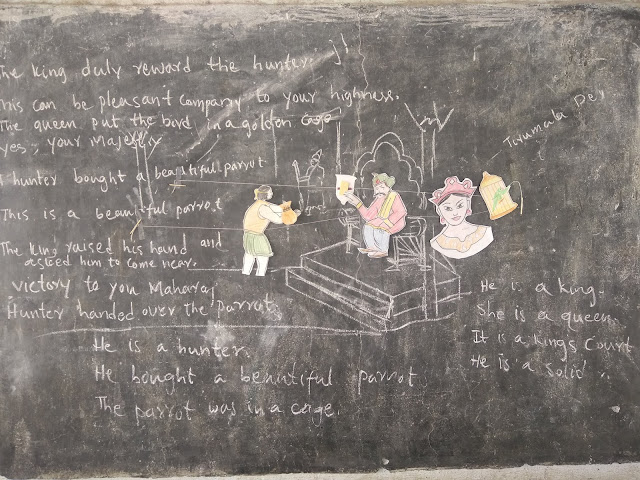 The king duly reward the hunter.
This can be pleasant company to your highness.
The queen put the bird in a golden cage
yes, your majesty
hunter bought a beautiful parrot
This is a beautiful parrot
The king raised his hand and
asked him to come near.
victory to you Maharaj
Hunter handed over the parrot.
He is a hunter.
He bought a beautiful parrot
The parrot was in a cage.
Tirumala Devi
He is a king.
She is a queen.
It is a kings Court
He is a solid